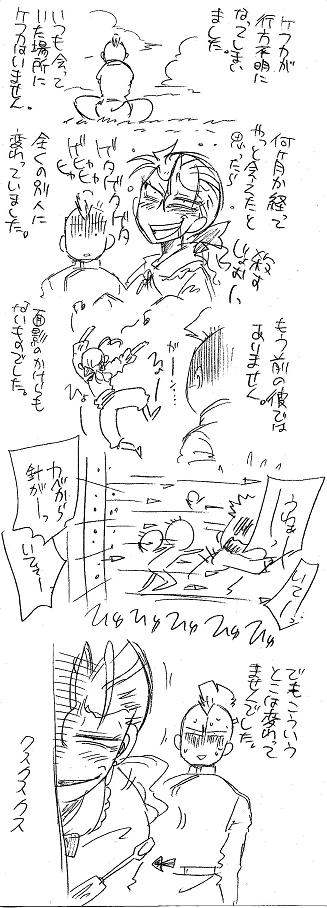 ケフカが
行方不明に
なってしまい
ました。
いつも会って
いた場所に
ケフカはいません。
何ヶ月か経って
やっと会えたと
思ったら
殺す
じょー!
ゲタゲタゲタ
ゲヒャヒャ
ヒャ
全くの別人に
変わっていました。
もう前の彼では
ありません。
がーん…
面影のかけらも
ないものでした。
うわっ
いてー!
カベから
針がーっ
いてェー
ひゅ ひゅ ひゅ ひゅ ひゅ
でもこういう
とこは変わって
ませんでした。
クスクスクス